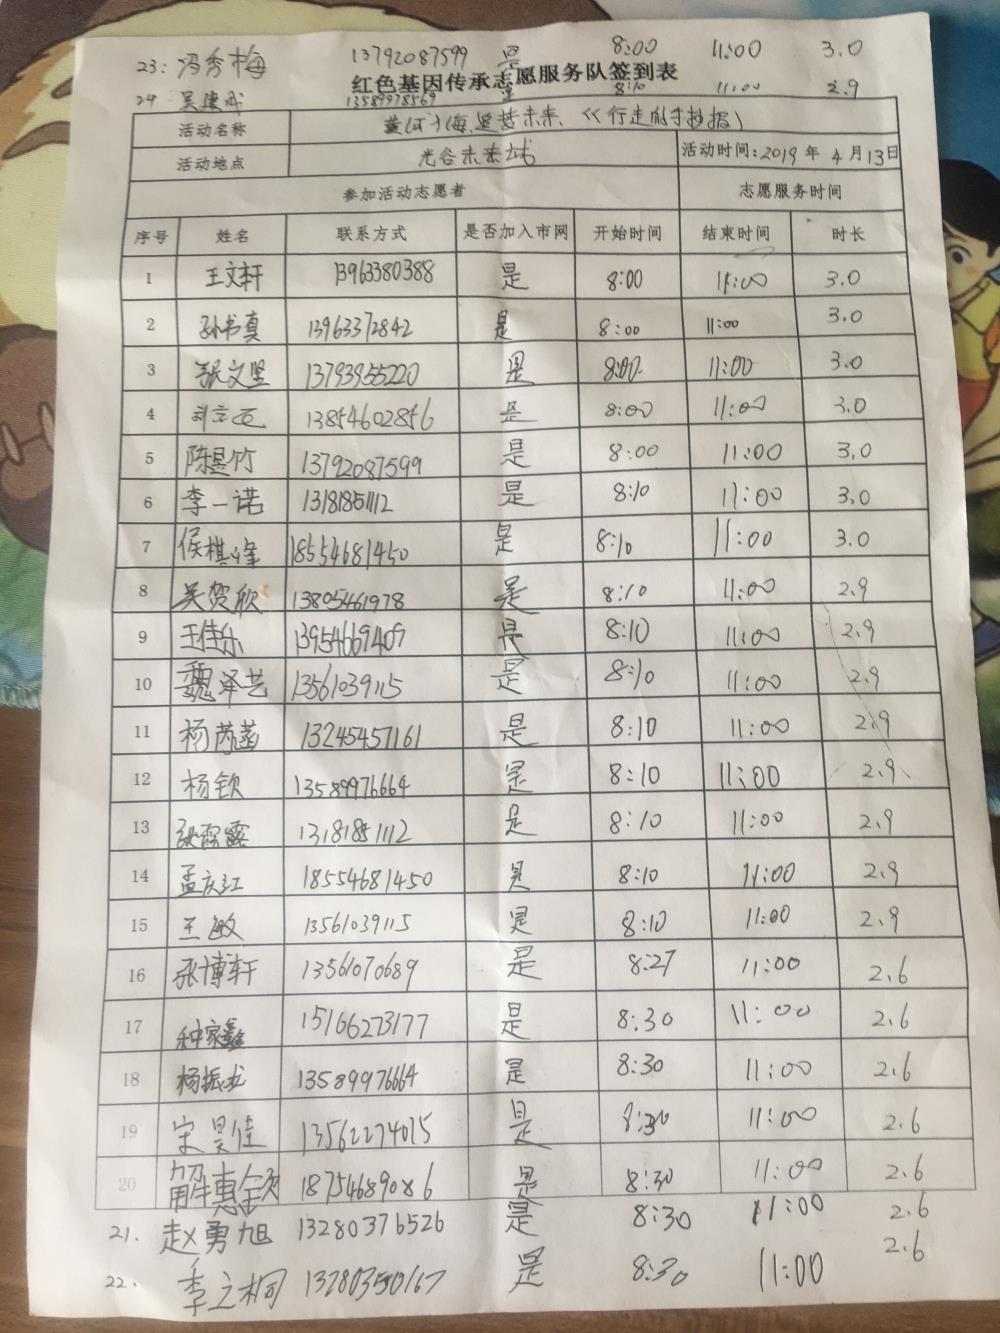 23: 冯秀梅 13792087599 是 8:00 11:00 3.0
红色基因传承志愿服务队签到表
24 吴建成 13589978569 是 8:10 11:00 2.9
活动名称 黄河 海 是梦未来、《行走的手抄报》
活动地点 光谷未来城 活动时间:2019年4月13日
参加活动志愿者 志愿服务时间
序号 姓名 联系方式 是否加入市网 开始时间 结束时间 时长
1 王文轩 13963380388 是 8:00 11:00 3.0
2 孙书真 13963372842 是 8:00 11:00 3.0
3 张文坚 13793955220 是 8:00 11:00 3.0
4 13854602856 是 8:00 11:00 3.0
5 陈昱竹 13792087599 是 8:00 11:00 3.0
6 李一诺 13181851112 是 8:10 11:00 3.0
7 侯棋峰 18554681450 是 8:10 11:00 3.0
8 吴贺欣 13805461978 是 8:10 11:00 2.9
9 王佳乐 13954669409 是 8:10 11:00 2.9
10 魏泽艺 13561039115 是 8:10 11:00 2.9
11 杨芮菡 13245457161 是 8:10 11:00 2.9
12 杨钦 13589976664 是 8:10 11:00 2.9
13 13181851112 是 8:10 11:00 2.9
14 孟庆江 18554681450 是 8:10 11:00 2.9
15 王敏 13561039115 是 8:10 11:00 2.9
16 张博轩 13561070689 是 8:27 11:00 2.6
17 种家鑫 15166273177 是 8:30 11:00 2.6
18 杨振龙 13589976664 是 8:30 11:00 2.6
19 宋昊佳 13562274015 是 8:30 11:00 2.6
20 解惠钦 18754689086 是 8:30 11:00 2.6
21. 赵勇旭 13280376526 是 8:30 11:00 2.6
22. 季之桐 13280350167 是 8:30 11:00 2.6